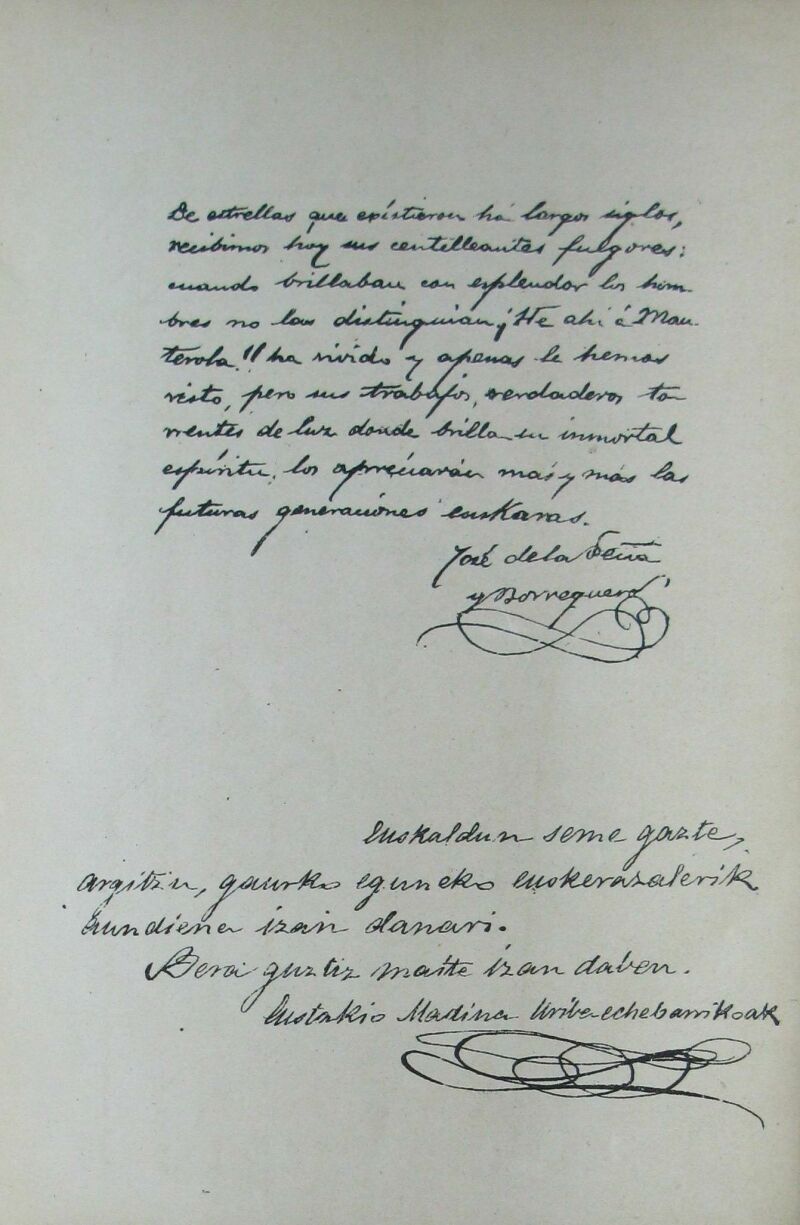 De estrellas que existieron há largos siglos,
recibimos hoy sus centilleantes fulgores;
cuando brillaban con esplendor los hom-
bres no las distinguían ¡He ahí á Man-
terola!! ha vivido y apenas le hemos
visto, pero sus trabajos, verdaderos to-
rrentes de luz donde brilla su inmortal
espíritu, los apreciarán más y más las
futuras generaciones euskaras.
José de la Peña
y Borreguero
Euskaldun seme gazte,
argitzu, gaurko eguneko euskerazalerik
aundiena izan danari.
Bera guztiz maite izan daben.
Eustakio Madina Uribe-echebarrikoak